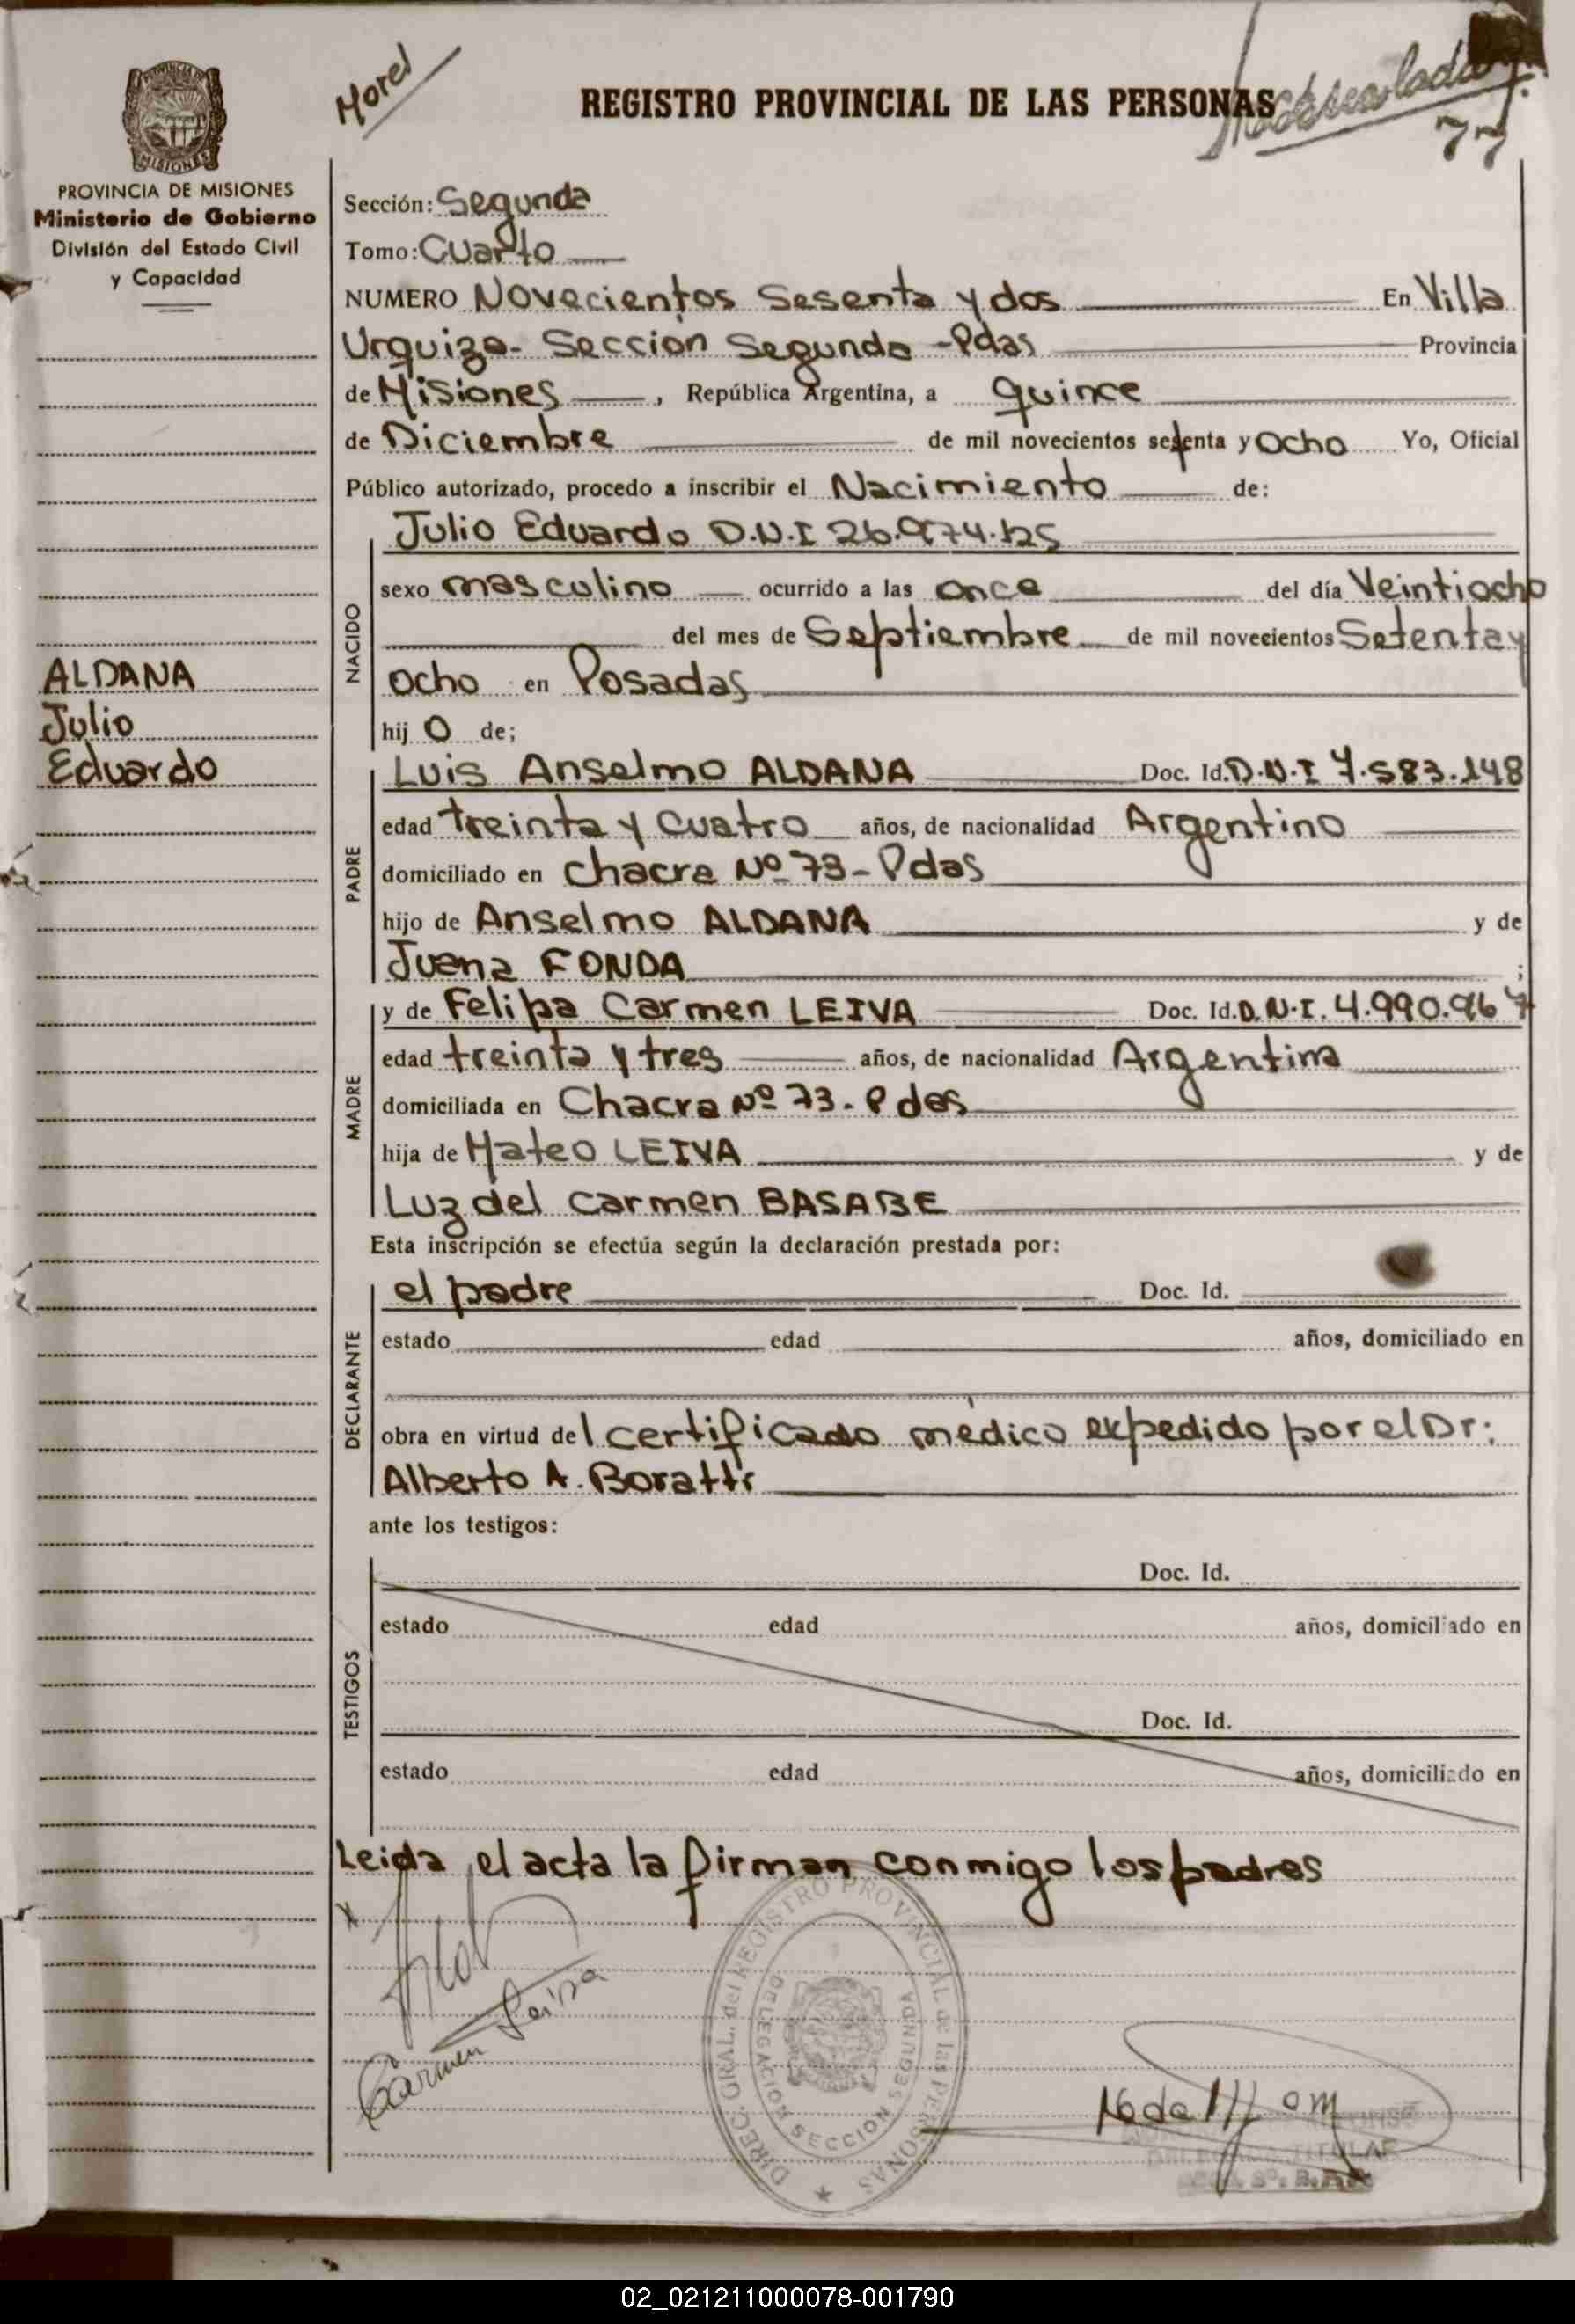 Morel
REGISTRO PROVINCIAL DE LAS PERSONAS
77
PROVINCIA DE MISIONES
Ministerio de Gobierno
División del Estado Civil
y Capacidad
Sección: Segunda
Tomo: Cuarto
NUMERO Novecientos Sesenta y dos En Villa
Urquiza - Sección Segunda - Pdas Provincia
de Misiones, República Argentina, a quince
de Diciembre de mil novecientos setenta y ocho Yo, Oficial
Público autorizado, procedo a inscribir el Nacimiento de:
Julio Eduardo D.N.I 26.974.125
NACIDO
sexo masculino ocurrido a las once del día Veintiocho
del mes de Septiembre de mil novecientos Setenta y
ocho en Posadas
hij o de;
ALDANA
Julio
Eduardo
PADRE
Luis Anselmo ALDANA Doc. Id. D.N.I 7.583.148
edad treinta y cuatro años, de nacionalidad Argentino
domiciliado en Chacra Nº 73 - Pdas
hijo de Anselmo ALDANA y de
Juana FONDA ;
MADRE
y de Felipa Carmen LEIVA Doc. Id. D.N.I. 4.990.967
edad treinta y tres años, de nacionalidad Argentina
domiciliada en Chacra Nº 73 - Pdas
hija de Mateo LEIVA y de
Luz del Carmen BASABE
Esta inscripción se efectúa según la declaración prestada por:
DECLARANTE
el padre Doc. Id.
estado edad años, domiciliado en
obra en virtud del certificado médico expedido por el Dr:
Alberto A. Boratti
ante los testigos:
TESTIGOS
Doc. Id.
estado edad años, domiciliado en
Doc. Id.
estado edad años, domiciliado en
Leida el acta la firman conmigo los padres
Carmen Leiva
DIREC. GRAL. del REGISTRO PROVINCIAL de las PERSONAS
DELEGACION SECCION SEGUNDA
TITULAR
02_021211000078-001790